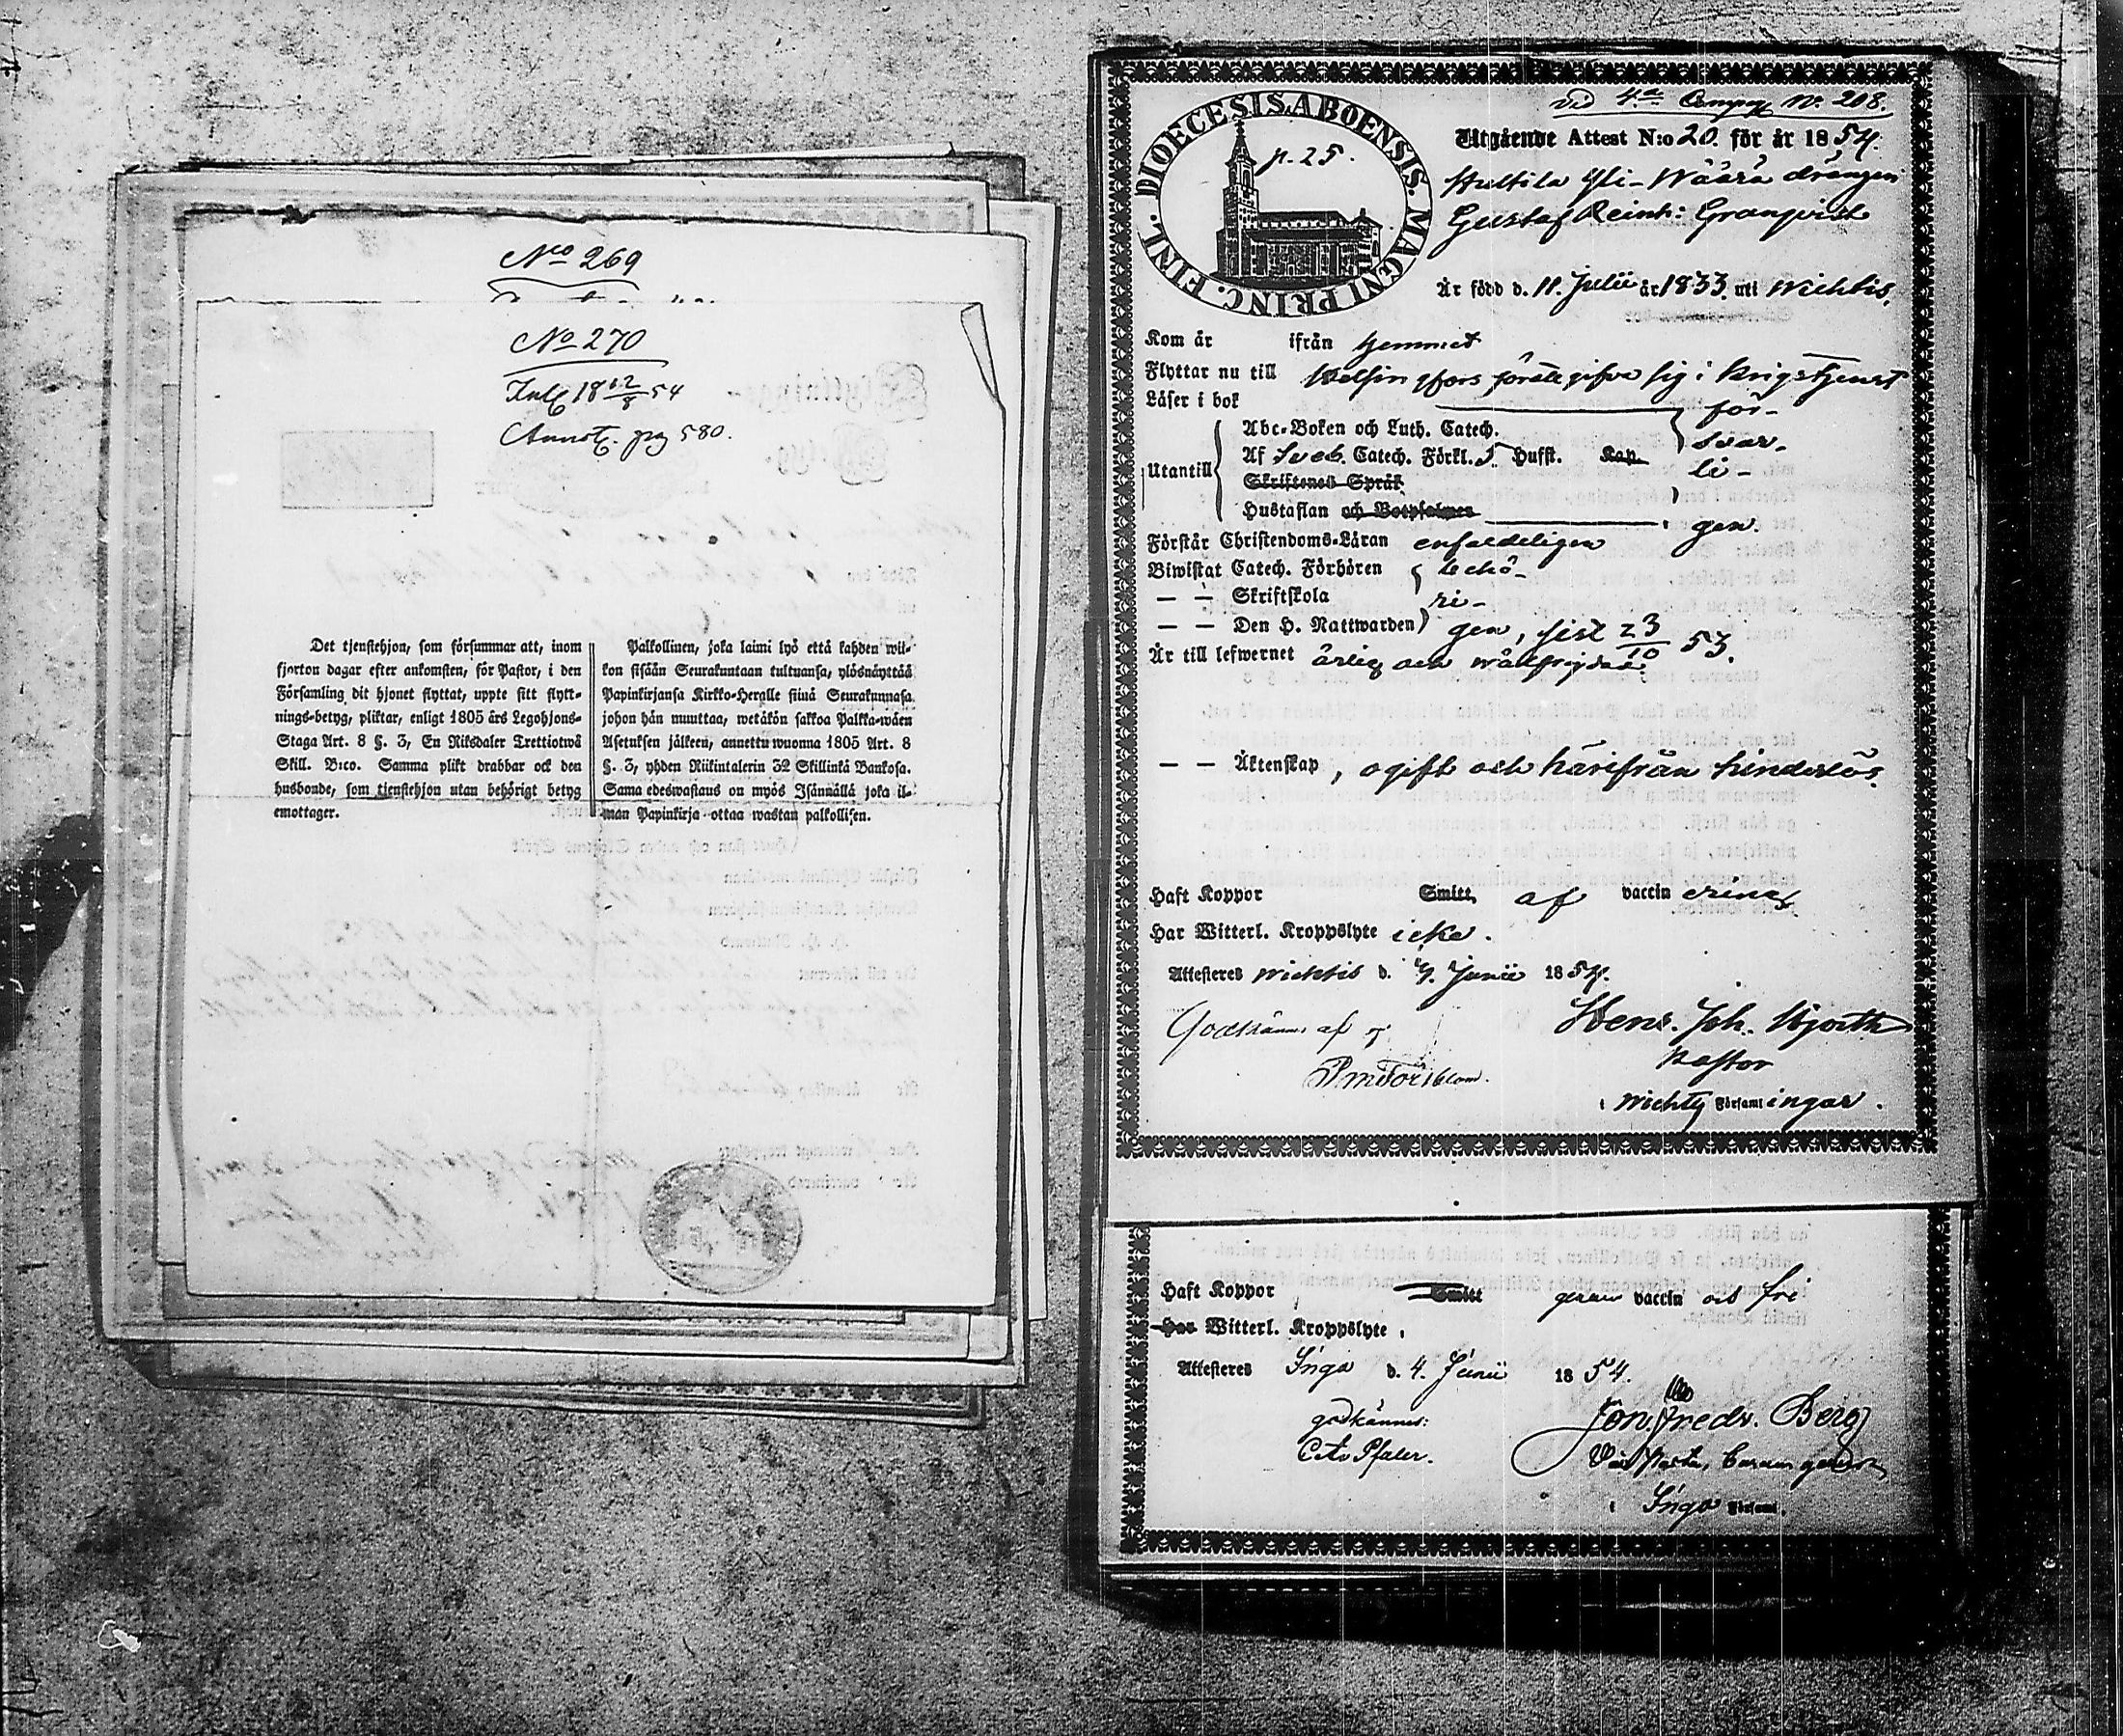 No 269
No 270
Inl 18 12/8 54
Annot. pag 580.
Det tjenstehjon, som försummar att, inom
fjorton dagar efter ankomsten, för Pastor, i den
Församling dit hjonet flyttat, uppte sitt flytt-
nings-betyg, pliktar, enligt 1805 års Legohjons-
Staga Art. 8 §. 3, En Riksdaler Trettiotwå
Skill. Bco. Samma plikt drabbar ock den
husbonde, som tjenstehjon utan behörigt betyg
emottager.
Palkollinen, joka laimi lyö että kahden wii-
kon sisään Seurakuntaan tultuansa, ylösnäyttää
Papinkirjansa Kirkko-Herralle siinä Seurakunnasa
johon hän muuttaa, wetäkön sakkoa Palkka-wäen
Asetuksen jälkeen, annettu wuonna 1805 Art. 8
§. 3, yhden Riikintalerin 32 Skillinkä Bankosa.
Sama edeswastaus on myös Isännällä joka il-
man Papinkirja ottaa wastan palkollisen.
vid 4:a Compag No. 208.
DIOECESIS ABOENSIS. MAGNI PRINC. FINL.
p. 25.
Utgående Attest N:o 20. för år 1854.
Hultila Yli-Wäärä drängen
Gustaf Reinh: Granqvist
Är född d. 11. Julii år 1833. uti Wichtis.
Kom år ifrån hemmet
Flyttar nu till Helsingfors för att gifva sig i krigstjenst
Läser i bok för-
Abc-Boken och Luth. Catech. svar-
Utantill Af Sveb. Catech. Förkl. 5. Hufst. Kap. li-
Skriftenes Språk
Hustaflan och Botpsalmer gen.
Förstår Christendoms-Läran enfaldeligen
Biwistat Catech. Förhören behö-
— — Skriftskola ri-
— — Den H. Nattwarden gen, sist 23/10 53.
Är till lefwernet ärlig och wälfrejdad.
— — Äktenskap, ogift och härifrån hinderlös.
Haft Koppor Smitt, af vaccin erines
Har Witterl. Kroppslyte icke.
Attesteras Wichtis d. 4. Junii 1854.
Henr. Joh. Hjorth
Godkännes af
Pastor
i Wichtis Församlingar.
Haft Koppor Smitt genom vaccin och fri
Har Witterl. Kroppslyte.
Attesteras Inga d. 4. Junii 1854.
godkännes:
Jon. Fredr. Berg
i Inga Församl.